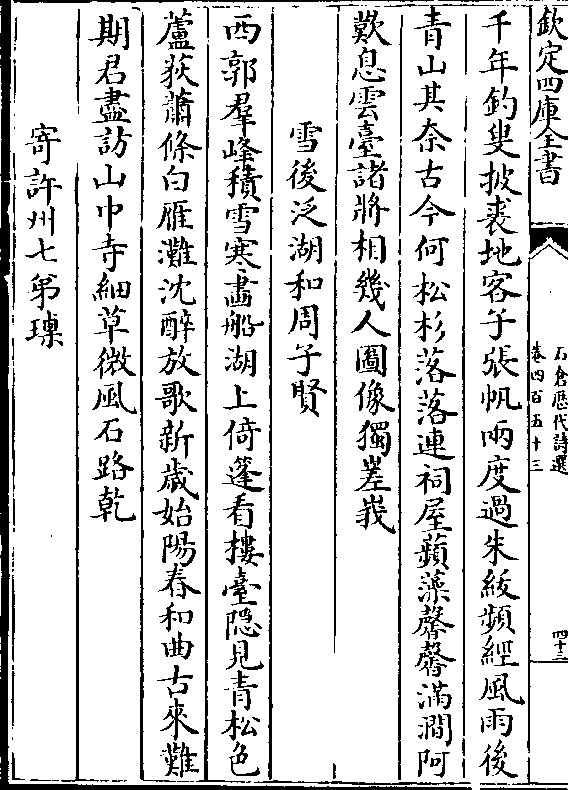 欽定四庫全書
石倉歷代詩選
卷四百五十三
四十三
千年釣叟披裘地客子張帆兩度過朱紱頻經風雨後
青山其奈古今何松杉落落連祠屋蘋藻馨馨滿澗阿
歎息雲臺諸將相幾人圖像獨嵳峩
雪後泛湖和周子賢
西郭羣峰積雪寒畵船湖上倚篷看樓臺隠見青松色
蘆荻蕭條白雁灘沈醉放歌新歲始陽春和曲古來難
期君盡訪山中寺細草微風石路乾
寄許州七弟瑮